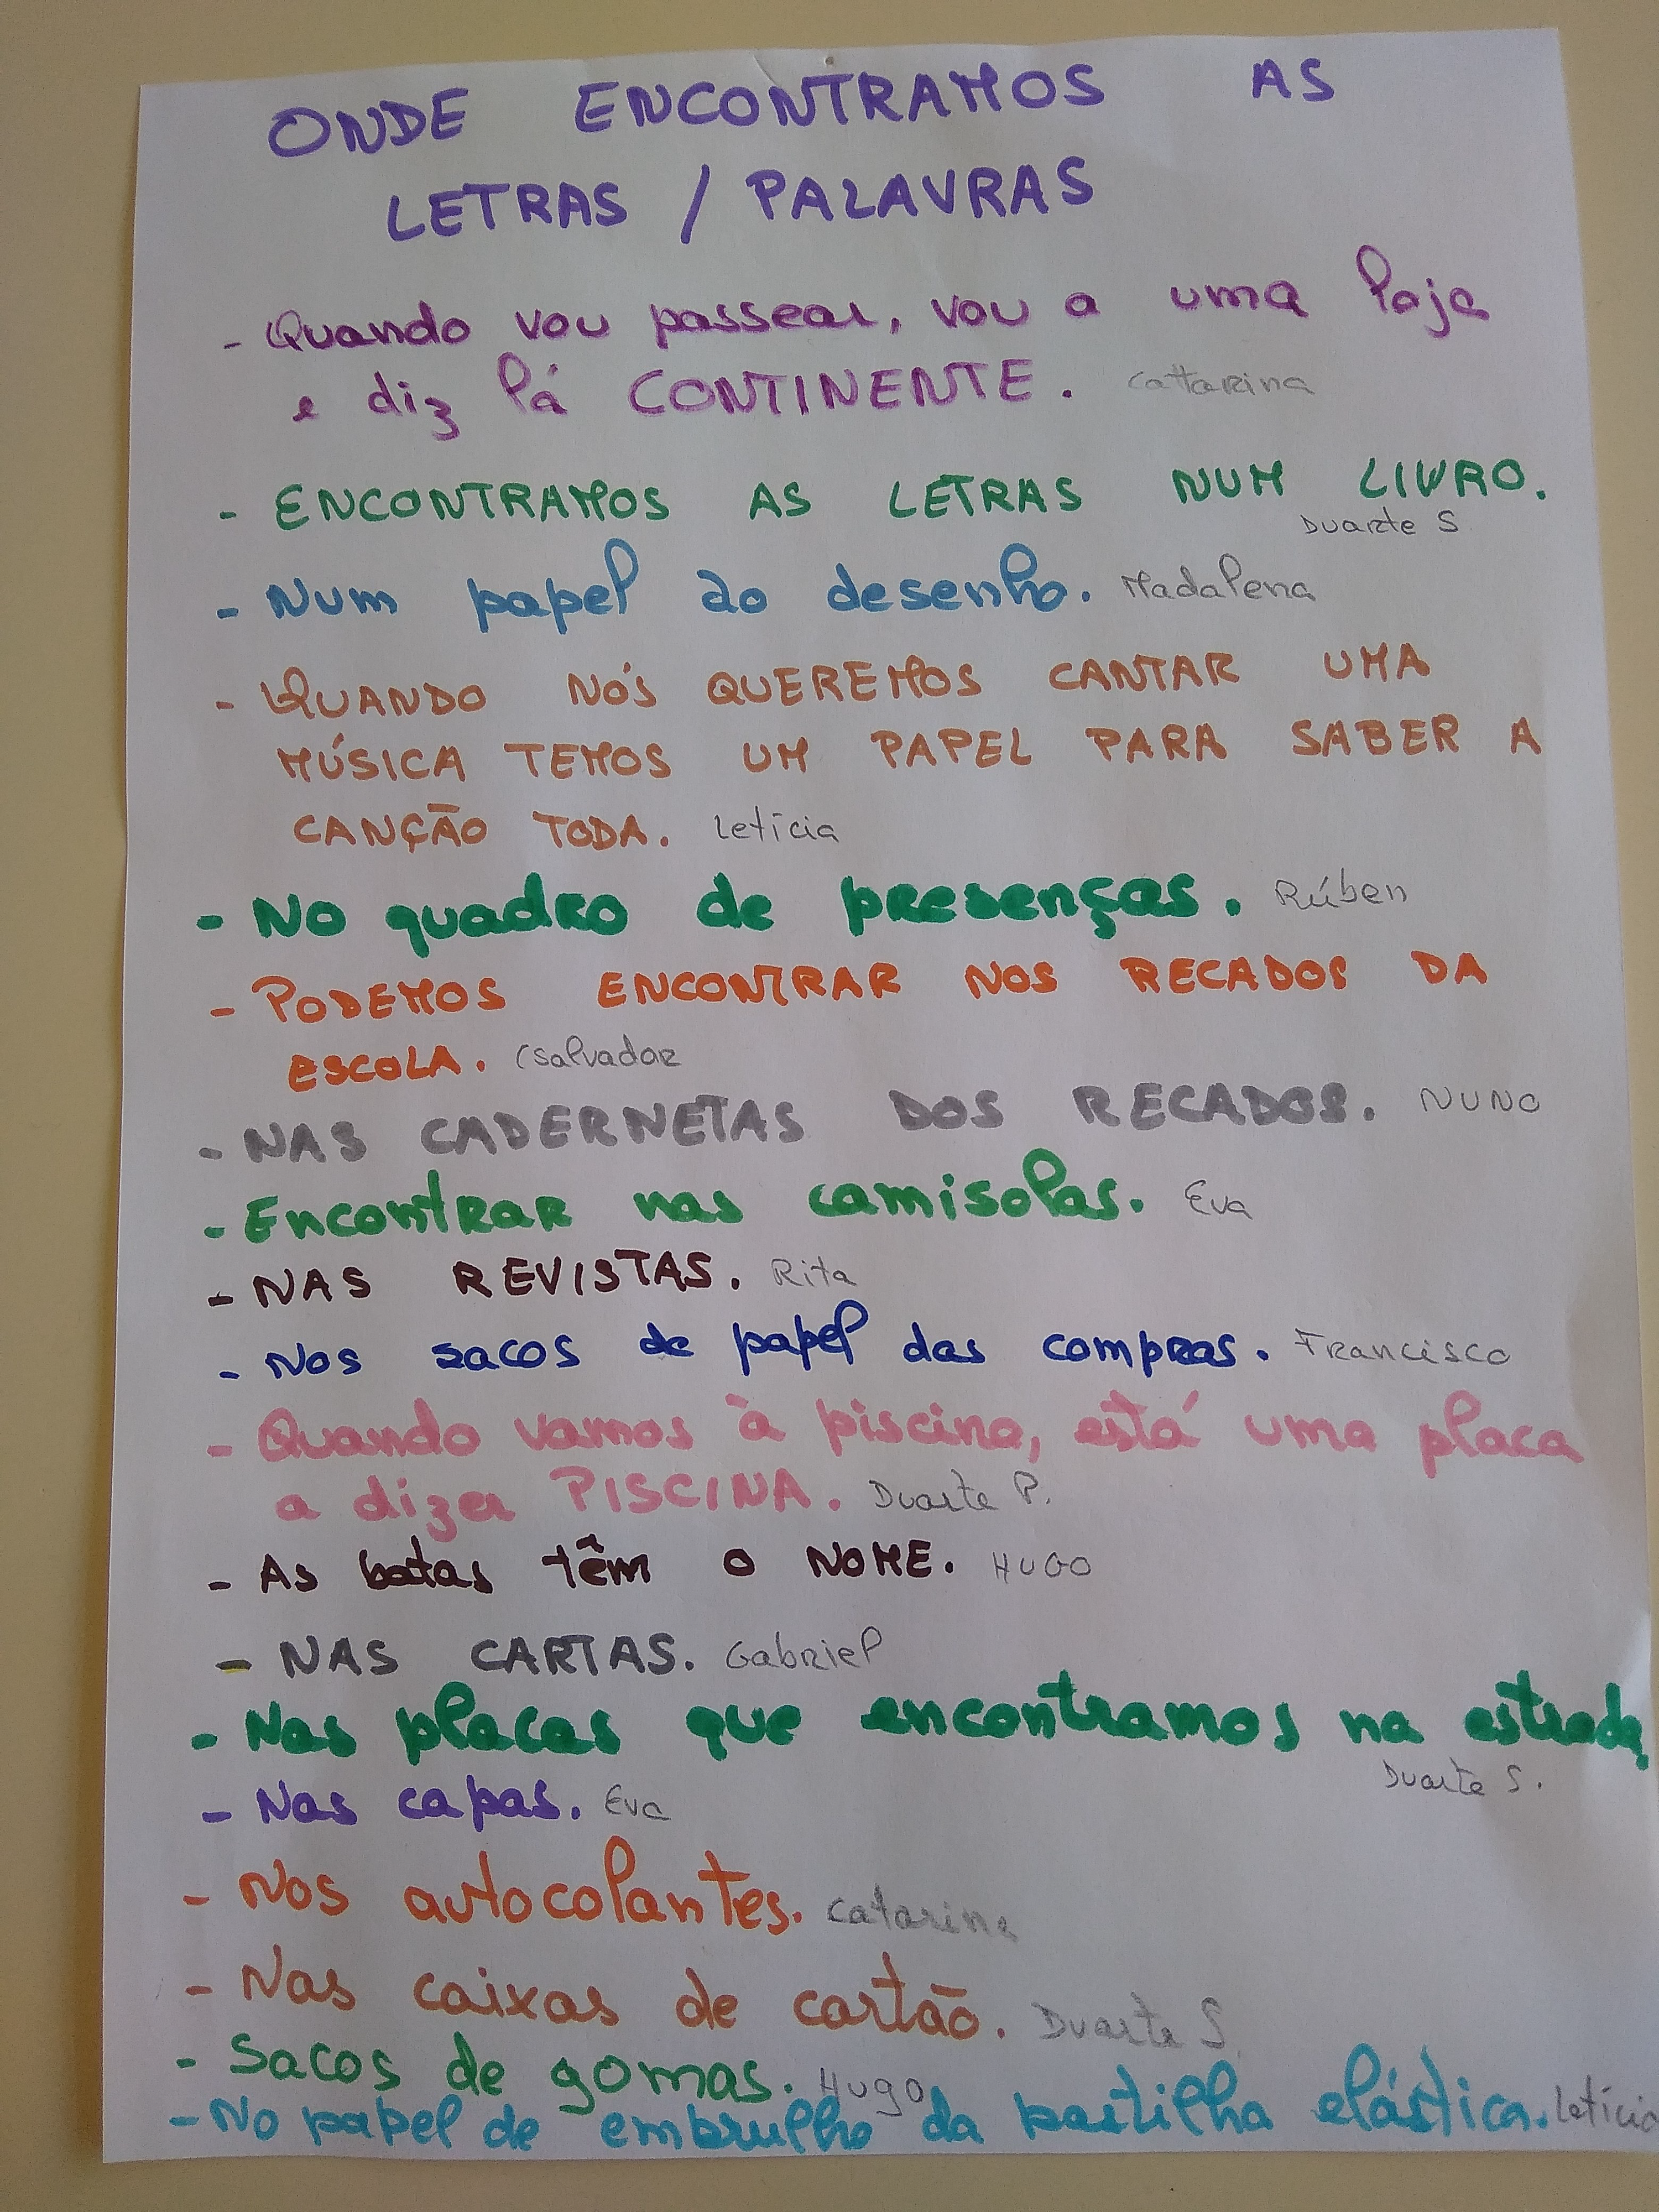 ONDE ENCONTRAMOS AS
LETRAS / PALAVRAS
- Quando vou passear, vou a uma loja
e diz lá CONTINENTE. Catarina
- ENCONTRAMOS AS LETRAS NUM LIVRO.
Duarte S
- Num papel ao desenho. Madalena
- QUANDO NÓS QUEREMOS CANTAR UMA
MÚSICA TEMOS UM PAPEL PARA SABER A
CANÇÃO TODA. Letícia
- No quadro de presenças. Rúben
- PODEMOS ENCONTRAR NOS RECADOS DA
ESCOLA. (Salvador
- NAS CADERNETAS DOS RECADOS. NUNO
- Encontrar nas camisolas. Eva
- NAS REVISTAS. Rita
- Nos sacos de papel das compras. Francisco
- Quando vamos à piscina, está uma placa
a dizer PISCINA. Duarte P.
- As batas têm o NOME. HUGO
- NAS CARTAS. Gabriel
- Nas placas que encontramos na estrada
Duarte S.
- Nas capas. Eva
- Nos autocolantes. Catarina
- Nas caixas de cartão. Duarte S.
- Sacos de gomas. Hugo
- No papel de embrulho da pastilha elástica. Letícia